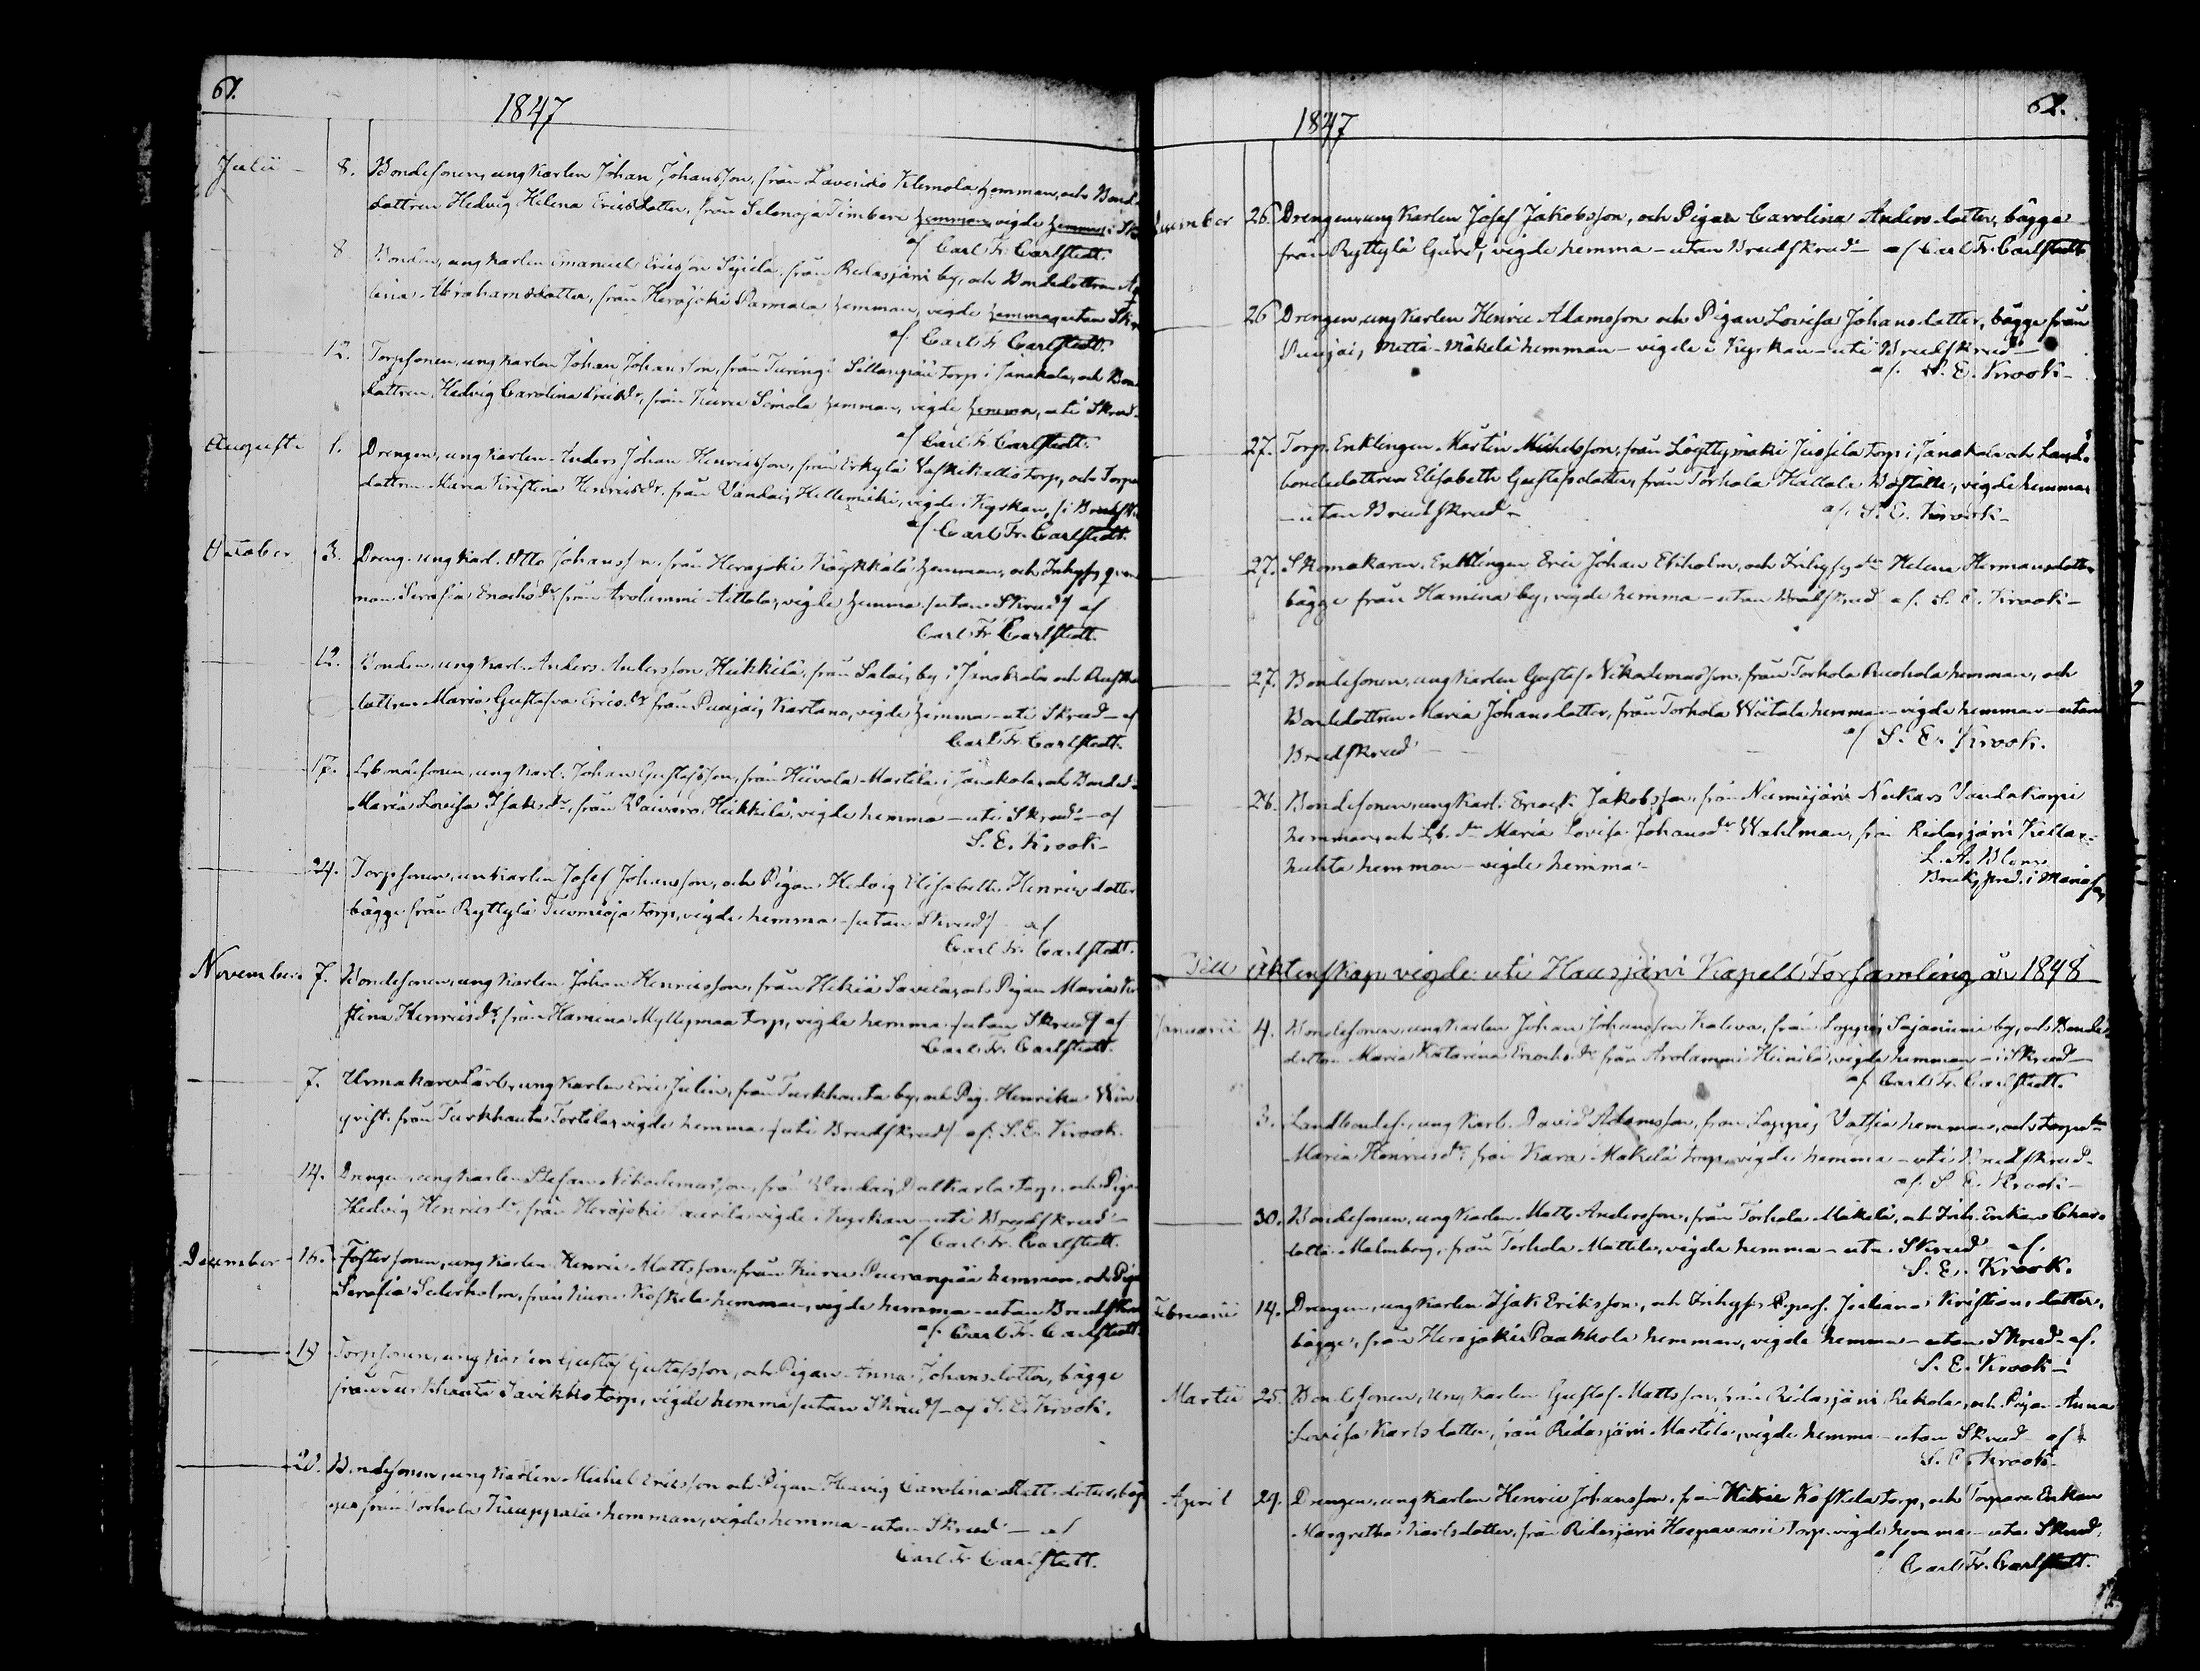 61.
1847
Julii - 8. Bondesonen, ung Karlen Johan Johansson, från Lavesuo Klemola hemman, och Bond.
dattren Hedvig Helena Ericsdotter, från Selenoja Timberi hemman, vigde hemma i Sk
af Carl Fr. Carlstedt.
8 Bonden, ung Karlen Emanuel Ericsson Sipilä, från Ridasjärvi by, och Bondedottren
lina Abrahamsdotter, från Herajoki Parmala hemman, vigde hemma utan Skr
af Carl Fr. Carlstedt.
12. Torpsonen, ung Karlen Johan Johansson, från Turingi Sillanpää torp i Janakala, och Bon
dattren Hedvig Carolina Ericsdr, från Kuru Simola hemman, vigde hemma, uti Skrud.
af Carl Fr. Carlstedt.
Augusti 1. Drengen, ung Karlen Anders Johan Henricsson, från Erkylä Vaskikallio torp, och Torpar
dattren Maria Kristina Henricsdr. från Vandais Hellemäki, vigde i Kyrkan, i Brudsk
af Carl Fr. Carlstedt.
October 3. Dreng. ung Karl. Otto Johansson, från Herajoki Käykkälä hemman, och Inhyses qvin
nan Serafia Enochsdr från Arolammi Aittola, vigde hemma utan Skrud af
Carl Fr. Carlstedt.
12. Bonden, ung Karl. Anders Andersson Heikkilä, från Salois by i Janakala och Rust
dattren Maria Gustafva Ericsdr från Puujais Kartano, vigde hemma uti Skrud - af
Carl Fr. Carlstedt.
17. Lbondesonen, ung Karl. Johan Gustafsson, från Hiivola Martila i Janakala, och Bonded.
Maria Lovisa Isaksdr, från Vaivaro Heikkilä, vigde hemma - uti Skrud - af
S. E. Krook -
24. Torpsonen, un Karlen Josef Johansson, och Pigan Hedvig Elisabeth Henricsdotter
bägge från Ryttylä Tuomioja torp, vigde hemma - utan Skrud af
Carl Fr. Carlstedt.
November 7. Bondesonen, ung Karlen Johan Henricsson, från Hikiä Savela, och Pigan Maria Kri
stina Henricsdr. från Hamina Myllymaa torp, vigde hemma - utan Skrud af
Carl Fr. Carlstedt.
7. Urmakare Lärl. ung Karlen Eric Julin, från Turkhauta by, och Pig. Henrika Win
qvist. från Turkhauta Tortila, vigde hemma - uti Brudskrud af S. E. Krook.
14. Drengen, ung Karlen Stefan Nikodemusson, från Vandais torp, och Piga
Hedvig Henricsdr. från Herajoki Laurila vigde i Kyrkan - uti Brudskrud -
af Carl Fr. Carlstedt.
December - 16. Fostersonen, ung Karlen Henric Mattsson från Kuru Puuranpää hemman, och Piga
Serafia Sederholm, från Kuru Koskela hemman, vigde hemma - utan Brudskru
af. Carl Fr. Carlstedt.
19 Torpsonen, ung Karlen Gustaf Gustafsson, och Pigan Anna Johansdotter, bägge
från Turkhauta Savikko torp, vigde hemma utan Skrud - af S. E. Krook.
28. Bondesonen, ung Karlen Michel Ericsson och Pigan Hedvig Carolina Mattsdotter, bäg
ge från Torhola Kauppala hemman, vigde hemma - utan Skrud - af
Carl Fr. Carlstedt.
62.
1847
December 26. Drengen, ung Karlen Josef Jakobsson, och Pigan Carolina Andersdotter, bägge
från Ryttylä Gård, vigde hemma - utan Brudskrud - af Carl Fr. Carlstedt
26 Drengen, ung Karlen Henric Adamsson och Pigan Lovisa Johansdotter, bägge från
Puujais Mattä-Mäkelä hemman - vigde i Kyrkan - uti Brudskrud -
af. S. E. Krook -
27. Torp. Enklingen Martin Michelsson, från Löyttymäki Jussila torp i Janakala och Land-
bondedottren Elisabeth Gustafsdotter, från Torhola Kallala Boställe, vigde hemma
- utan Brudskrud - af. S. E. Krook -
27. Skomakaren, Enklingen Eric Johan Ekholm, och Inhysesdtr Helena Hermansdotter
bägge från Hamina by, vigde hemma - utan Brudskrud - af. S. E. Krook -
27. Bondesonen, ung Karlen Gustaf Nikodemusson, från Torhola Ruohola hemman, och
Bondedottren Maria Johansdotter, från Torhola Wiitala hemman - vigde hemma - utan
Brudskrud - af S. E. Krook.
26. Bondesonen, ung Karl. Enock Jakobsson, från Nurmijärvi Nukars Vandakorpi
hemman, och Lb. dr Maria Lovisa Johansdr Wahlman, från Ridasjärvi Kella-
huhta hemman - vigde hemma -
L. A. Blom
Brukspred. i Mariefors
Till äktenskap vigde uti Hausjärvi Kapell Församling år 1848
Januarii 4. Bondesonen, ung Karlen Johan Johansson Kaleva, från Loppis Sajaniemi by, och Bonde-
dottren Maria Katarina Enochsdr från Arolammi Heinilä, vigde hemma - i Skrud -
af Carl Fr. Carlstedt.
3. Landbondes. ung Karl. David Adamsson, från Loppis Vatsia hemman, och torpdtr
Maria Henricsdr. från Kara Mäkelä torp, vigde hemma - uti Brudskrud -
af. S. E. Krook -
30. Bondesonen, ung Karlen Matts Andersson, från Torhola Mäkelä, och Inh. Enkan Char-
lotta Malmberg, från Torhola Mattila, vigde hemma - utan Skrud af.
S. E. Krook.
Februarii 14. Drengen, ung Karlen Isak Eriksson, och Inhyses Juliana Kristiansdotter,
bägge, från Herajoki Paakkola hemman, vigde hemma - utan Skrud - af.
S. E. Krook -
Martii 25. Bondesonen, Ung Karlen Gustaf Mattsson, från Ridasjärvi Rekola, och Pigan Anna
Lovisa Karlsdotter, från Ridasjärvi Martila, vigde hemma - utan Skrud - af
S. E. Krook -
April 24. Drengen, ung Karlen Henric Johansson, från Hikiä Koskela torp, och Torpare Enkan
Margretha Karlsdotter, från Ridasjärvi Haapavuori torp, vigde hemma - utan Skrud,
af Carl Fr. Carlstedt.